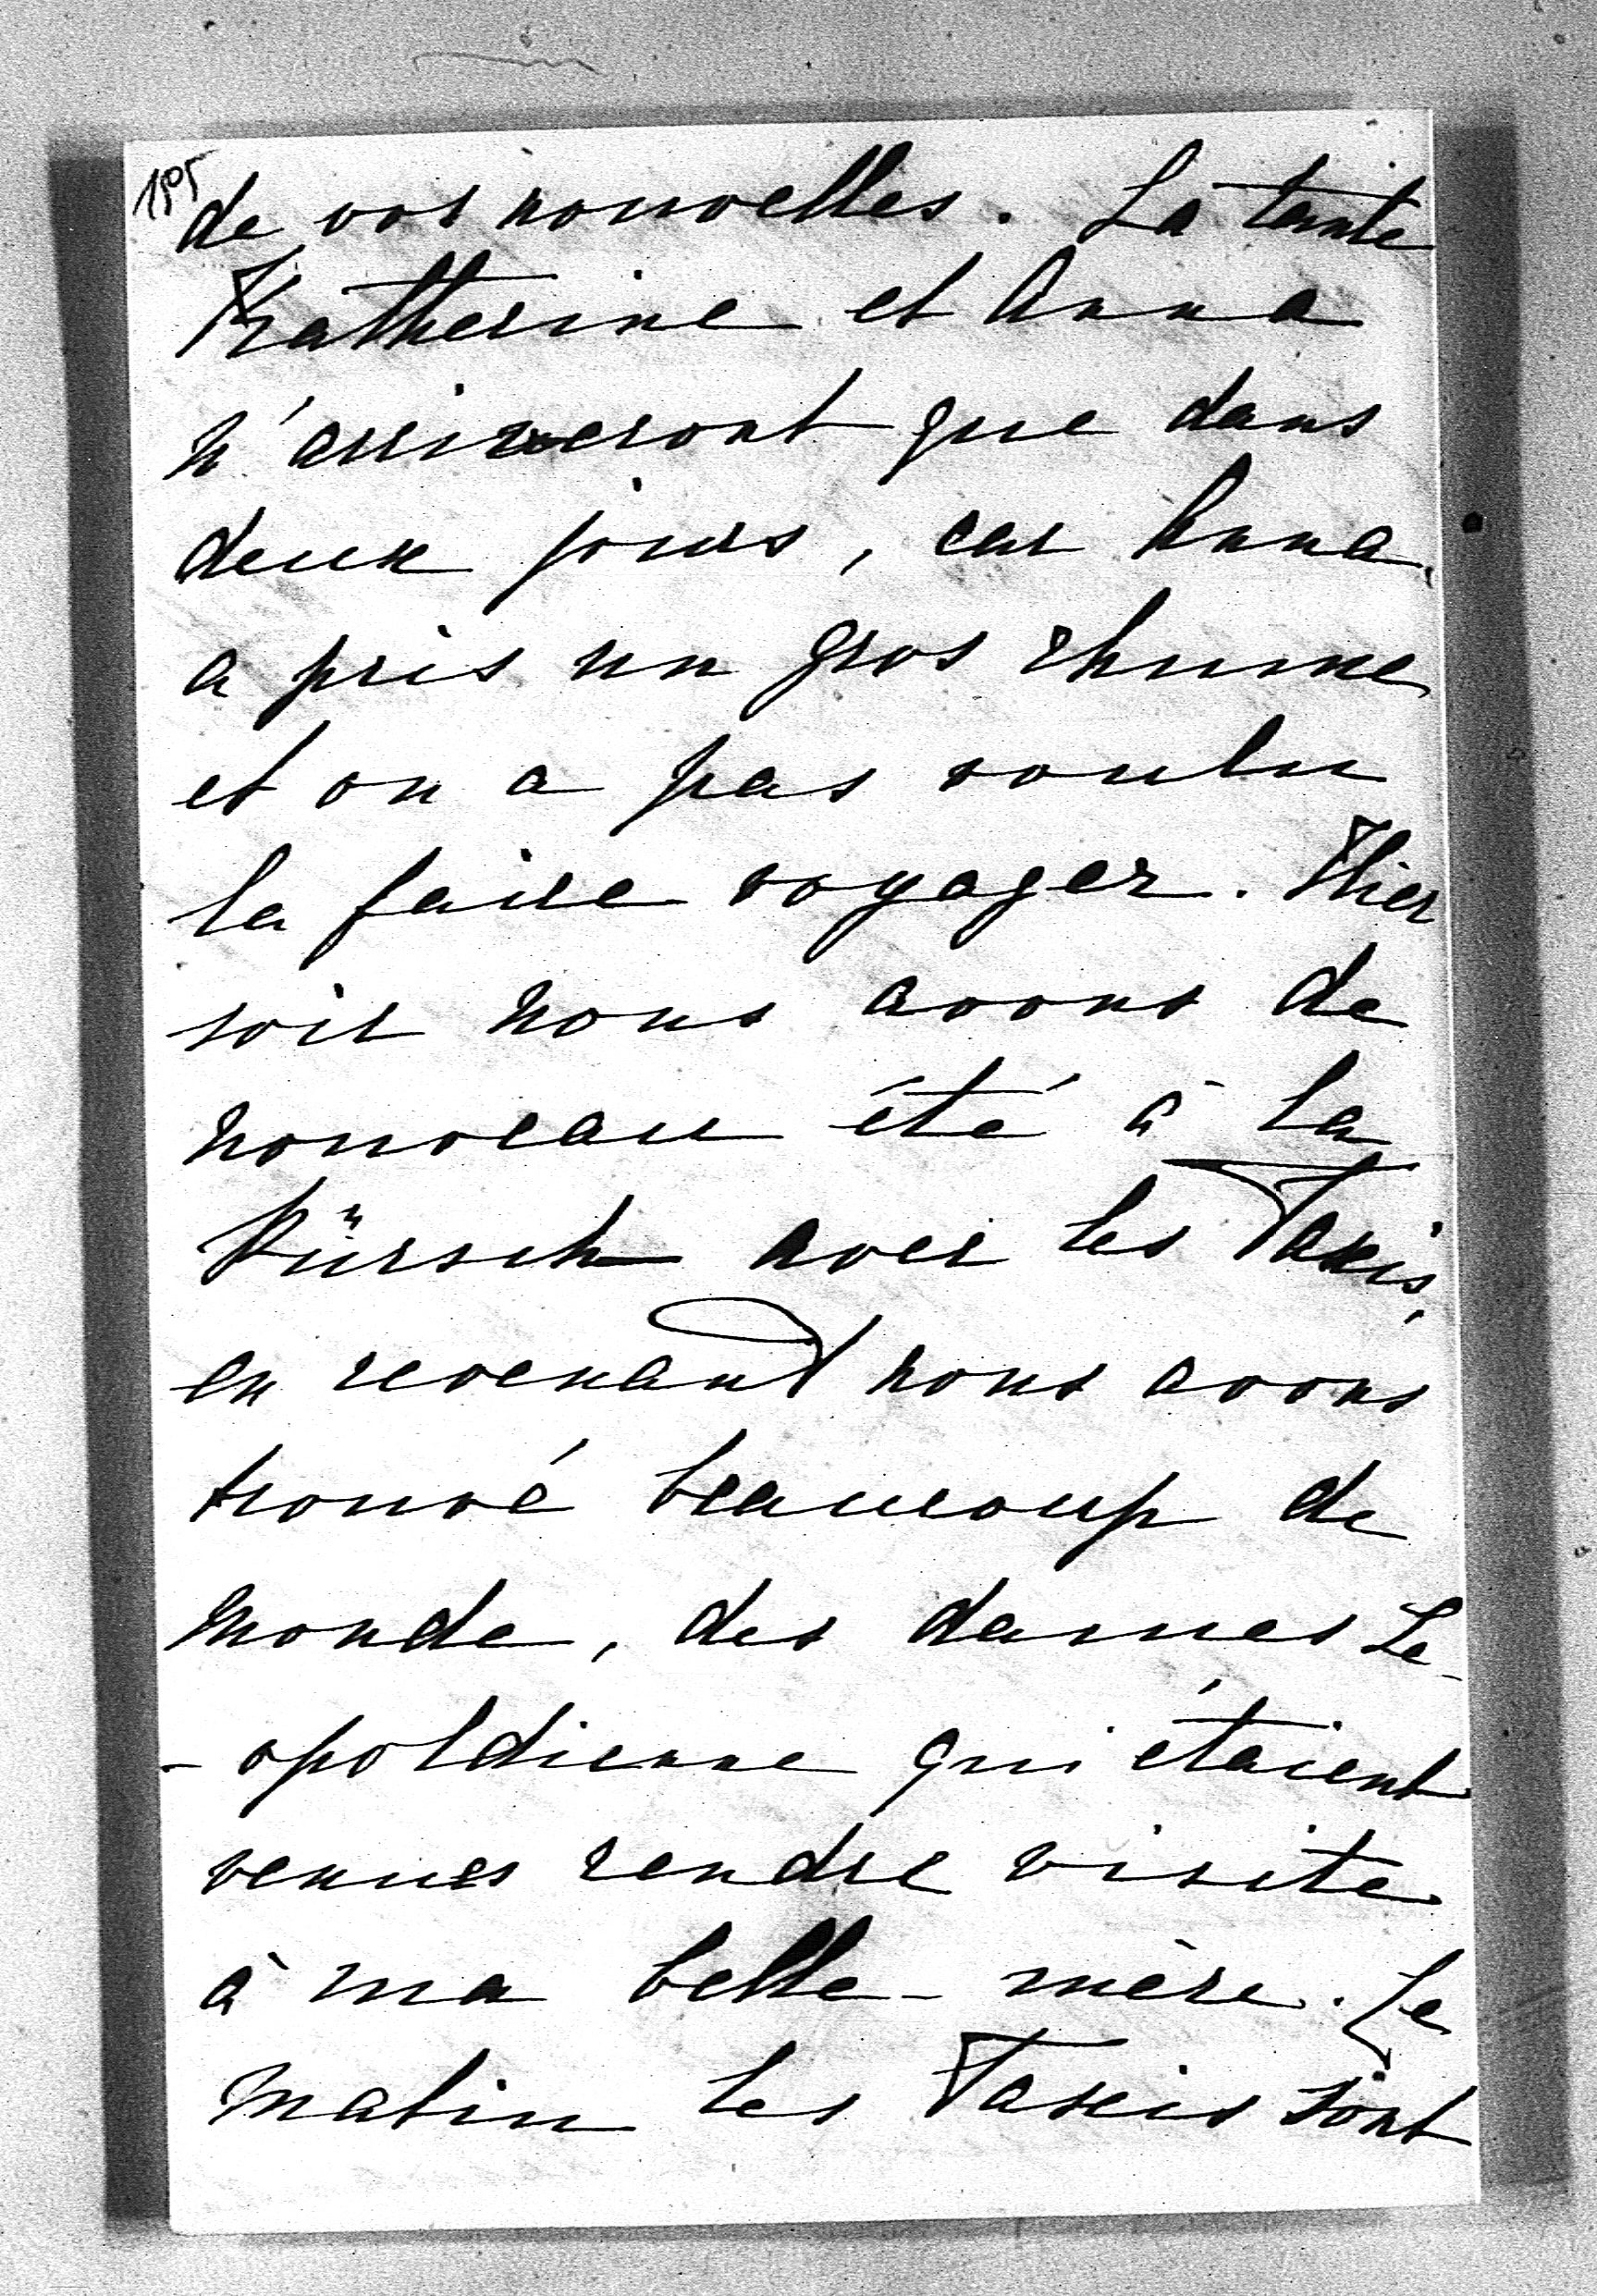 de vos nouvelles. La tante
Katherine et Anna
n'arriveront que dans
deux jours, car Anna
a pris un gros rhume
et on a pas voulu
la faire voyager. Hier
soir nous avons de
nouveau été à la
Pürsch avec les Taxis,
en revenant nous avons
trouvé beaucoup de
monde, des dames Le-
- opoldienne qui étaient
venues rendre visite
à ma belle-mère. Le
matin les Taxis sont